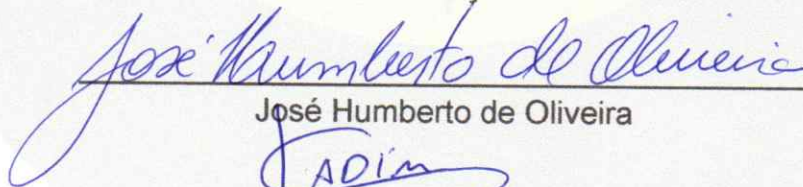 José Humberto de Oliveira
José Humberto de Oliveira